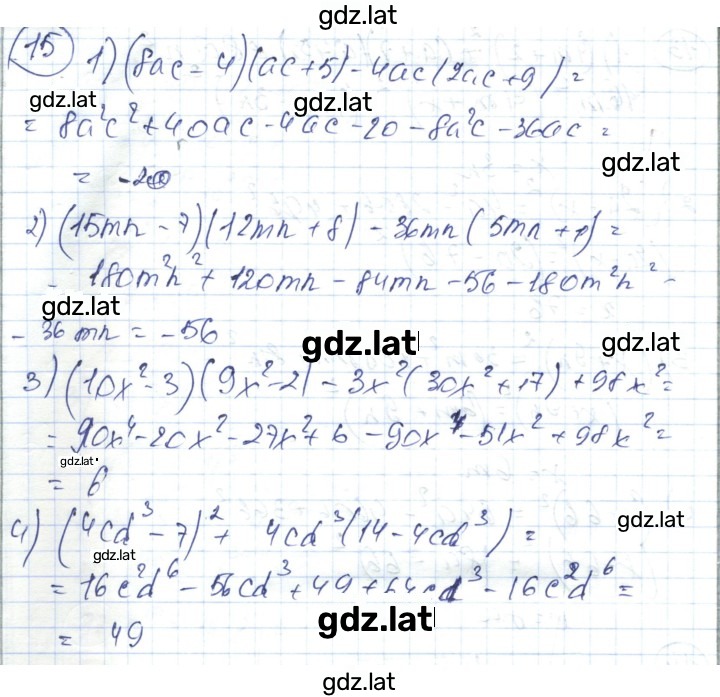 gdz.lat
15 1) (8ac - 4)(ac + 5) - 4ac(2ac + 9) =
gdz.lat gdz.lat
= 8a²c² + 40ac - 4ac - 20 - 8a²c - 36ac =
gdz.lat
= -20
2) (15mn - 7)(12mn + 8) - 36mn(5mn + 1) =
- 180m²n² + 120mn - 84mn - 56 - 180m²n² -
gdz.lat
- 36mn = -56
gdz.lat
3) (10x² - 3)(9x² - 2) - 3x²(30x² + 17) + 98x² =
= 90x⁴ - 20x² - 27x² + 6 - 90x⁴ - 51x² + 98x² =
gdz.lat
= 6
gdz.lat
4) (4cd³ - 7)² + 4cd³(14 - 4cd³) =
gdz.lat
= 16c²d⁶ - 56cd³ + 49 + cd³ - 16c²d⁶ =
gdz.lat
= 49
gdz.lat